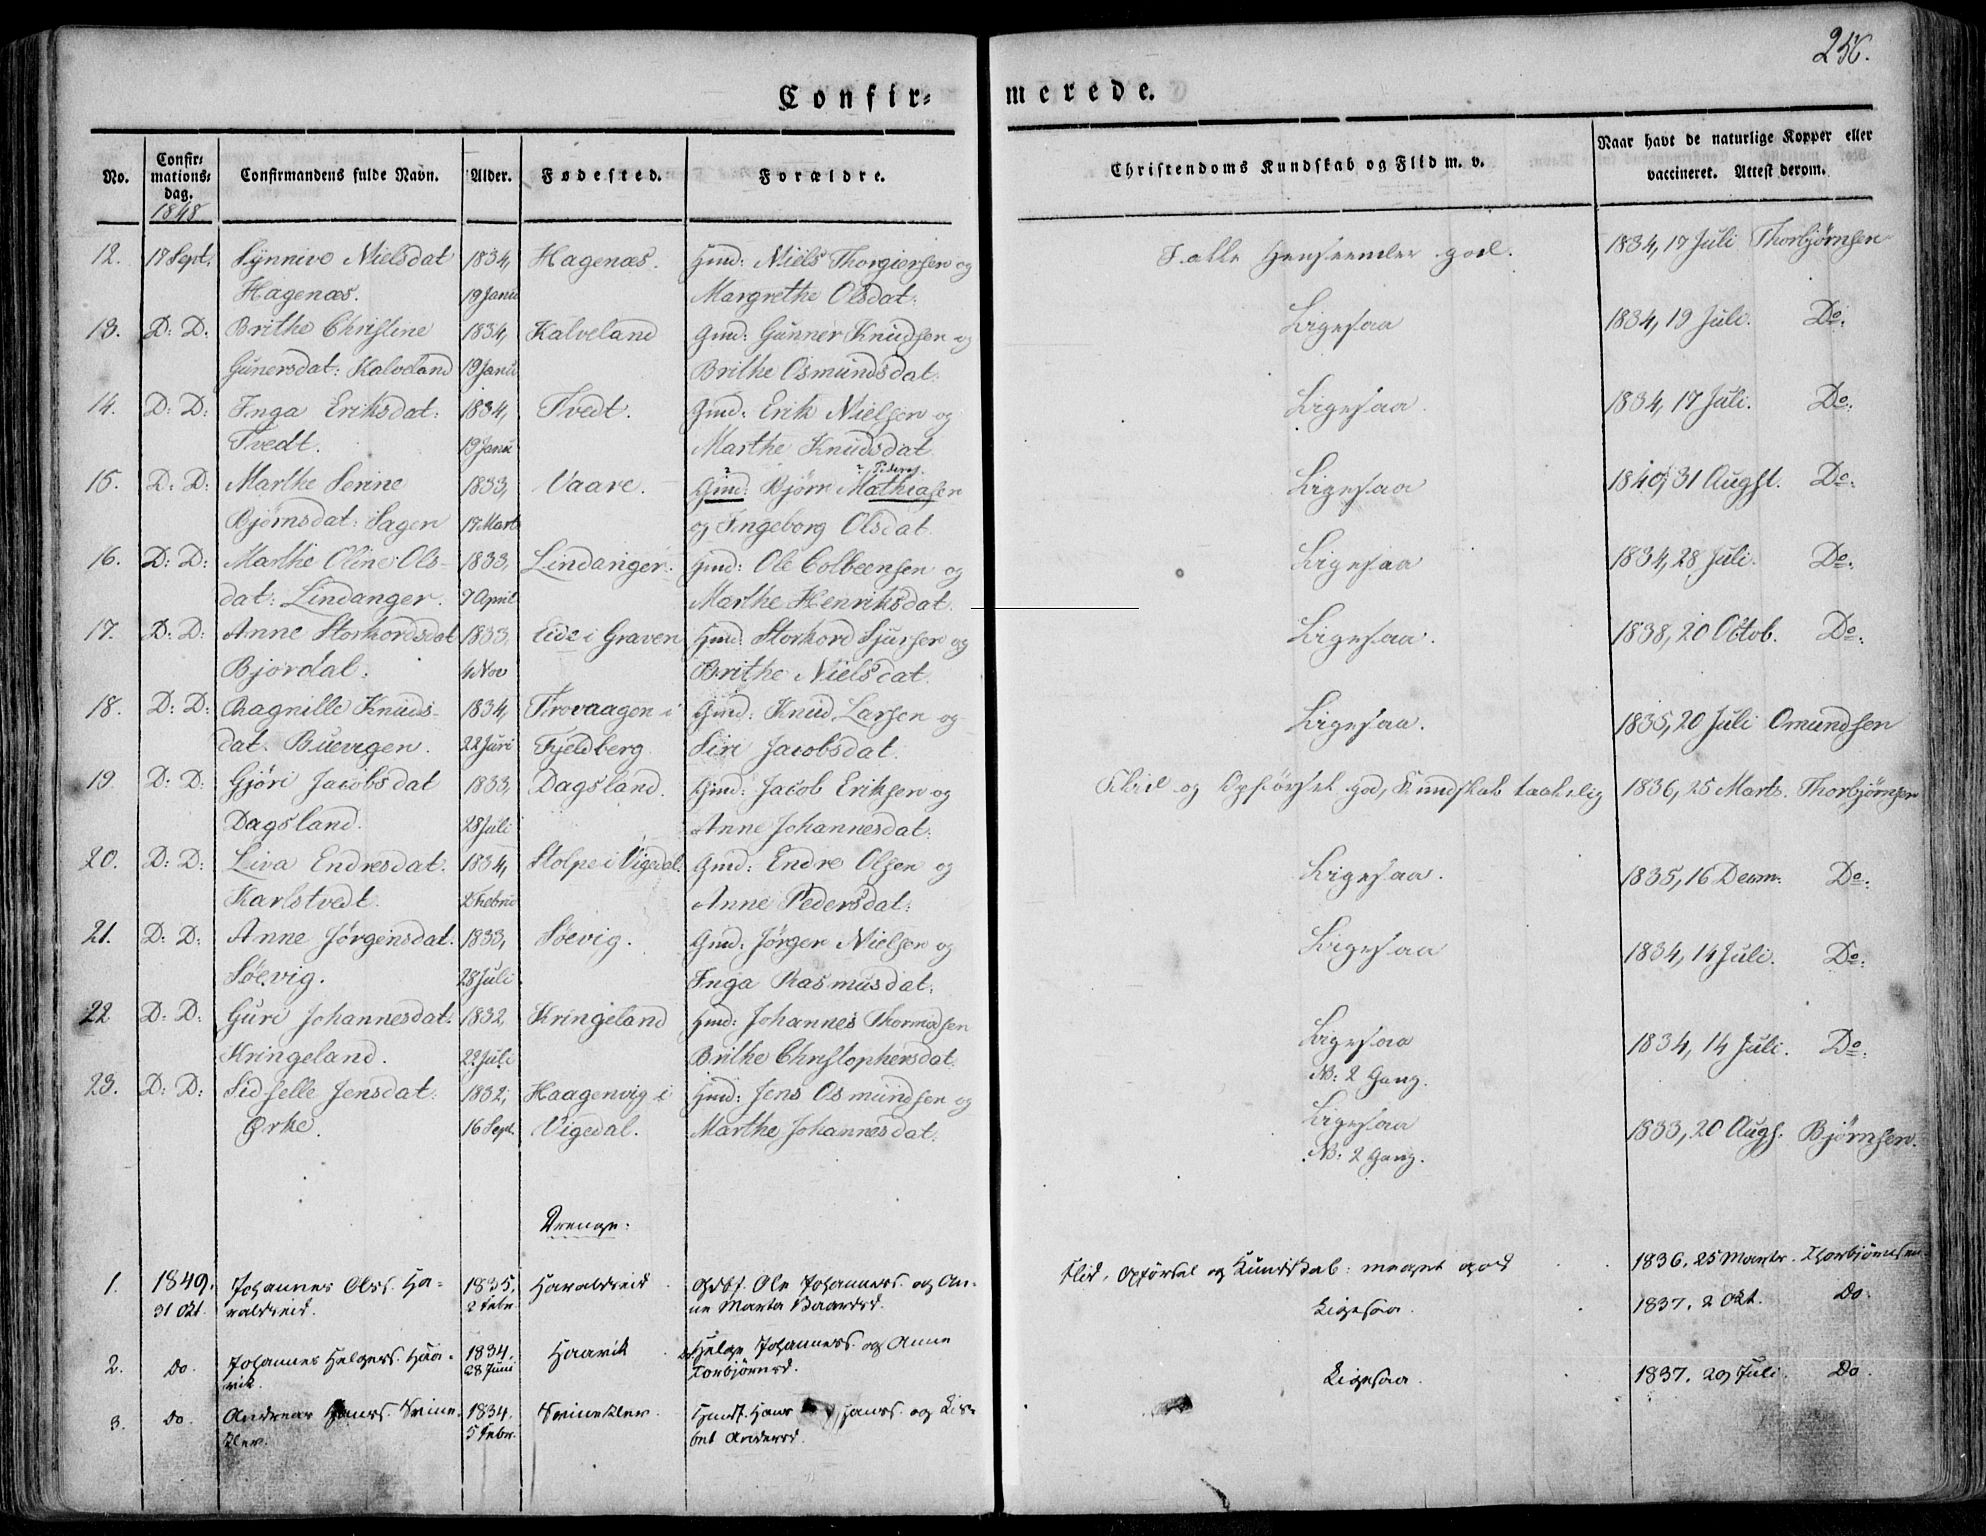 256.
Confir-
merede.
No.
Confir-
mations-
dag.
1848
Confirmandens fulde Navn.
Alder.
Fødested.
Forældre.
Christendoms Kundskab og Flid m. v.
Naar havt de naturlige Kopper eller
vaccineret. Attest derom.
12. 17 Sept. Synnive Nielsdat 1834, Hagenæs. Hmd: Niels Thorgiersen og I alle Henseender god. 1834, 17 Juli Thorbjørnsen
Hagenæs. 19 Janu Margrethe Olsdat:
13. D: D: Brithe Christine 1834, Kalveland Gmd: Gunner Knudsen og Ligesaa 1834, 19 Juli. Do:
Gunersdat: Kalveland 19 Janu Brithe Osmundsdat:
14. D: D: Inga Eriksdat: 1834, Tvedt. Gmd: Erik Nielsen og Ligesaa. 1834, 17 Juli. Do:
Tvedt. 19 Janu Marthe Knudsdat
15. D: D: Marthe Serine 1833, Vaare. Gmd: Bjørn Mathiasen Ligesaa 1840, 31 Augst. Do:
Bjørnsdat: Sagen 17 Mart og Ingeborg Olsdat.
16. D: D: Marthe Oline Ols- 1833, Lindanger. Hmd: Ole Colbeensen og Ligesaa 1834, 28 Juli. Do:
dat: Lindanger. 7 April Marthe Henriksdat.
17. D: D: Anne Storkordsdat 1833 Eide i Graven Hmd: Storkord Sjursen og Ligesaa. 1838, 20 Octob. Do:
Bjordal. 4 Nov Brithe Nielsdat.
18. D: D: Ragnille Knuds- 1834, Trovaagen i Gmd: Knud Larsen og Ligesaa. 1835, 20 Juli Omundsen
dat. Buevigen. 22 Juni Fjeldberg Siri Jacobsdat.
19. D: D: Gjøri Jacobsdat 1833, Dagsland. Gmd: Jacob Eriksen og Flid og Opførsel god, Kundskab taalelig 1836, 25 Marts. Thorbjørnsen
Dagsland. 28 Juli Anne Johannesdat:
20. D: D: Liva Endresdat. 1834, Stolpe i Vigedal. Gmd: Endre Olsen og Ligesaa. 1835, 16 Decm. Do:
Karlstvedt. 2 Febru Anne Pedersdat:
21. D: D: Anne Jørgensdat. 1833, Søevig. Gmd: Jørgen Nielsen og Ligesaa 1834, 14 Juli. Do:
Søevig. 28 Juli Inga Rasmusdat.
22 D: D: Guri Johannesdat: 1832, Kringeland Hmd: Johannes Thormodsen Ligesaa 1834, 14 Juli. Do:
Kringeland. 29 Juli Brithe Christophersdat. NB: 2 Gang.
23. D: D: Sidselle Jensdat: 1832, Haagenvig i Hmd: Jens Osmundsen og Ligesaa 1833, 20 Augs. Bjørnsen.
Ørke. 16 Sept. Vigedal. Marthe Johannesdat: NB: 2 Gang.
Drenge:
1. 1849. Johannes Ols. Ha- 1835. Haraldseid. Ole Johanness. og An- Flid, Opførsel og Kundskab: meget god 1836. 25 Marts. Thorbjørnsen
31 Okt. raldseid. 2 Febr. ne Marta Baardsd. Ligesaa. 1837. 2 Okt. Do.
2. Do. Johannes Helges. Haa- 1834. Haavik. Helge Johanness. og Anne Ligesaa. 1837. 29 Juli. Do.
vik. 28 Juni Torbjørnsd.
3. Do. Andreas Hans. Svine- 1834. Svinekler. Hans Hans. og Lis-
kler. 5 Febr. bet Andersd.